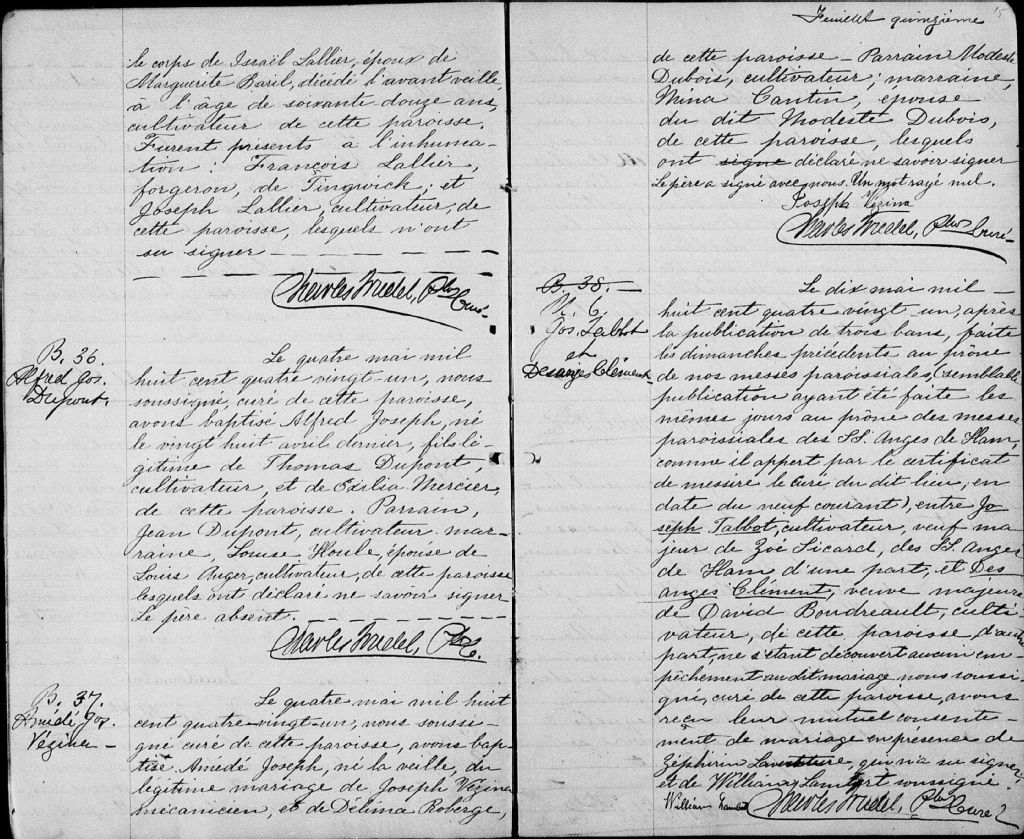 le corps de Israël Lallier, époux de
Marguerite Baril, décédé l'avant veille,
à l'âge de soixante douze ans,
cultivateur de cette paroisse.
Furent presents à l'inhuma-
tion: François Lallier,
forgeron, de Tingwick; et
Joseph Lallier, cultivateur, de
cette paroisse, lesquels n'ont
su signer
Charles Trudel, Ptre Curé
B. 36
Alfred Jos.
Dupont.
Le quatre mai mil
huit cent quatre-vingt-un, nous
soussigné, curé de cette paroisse,
avons baptisé Alfred Joseph, né
le vingt huit avril dernier, fils lé-
gitime de Thomas Dupont,
cultivateur, et de Exilia Mercier,
de cette paroisse. Parrain,
Jean Dupont, cultivateur, mar-
raine, Louise Houle, épouse de
Louis Auger, cultivateur, de cette paroisse
lesquels ont déclaré ne savoir signer
Le père absent.
Charles Trudel, Ptre C.
B. 37.
Amédé Jos.
Vézina
Le quatre mai mil huit
cent quatre-vingt-un, nous soussi-
gné curé de cette paroisse, avons bap-
tisé Amédé Joseph, né la veille, du
légitime mariage de Joseph Vézina
mécanicien, et de Délima Roberge,
15
Feuillet quinzième
de cette paroisse - Parrain Modeste
Dubois, cultivateur; marraine,
Mina Cantin, épouse
du dit Modeste Dubois,
de cette paroisse, lesquels
ont signé déclaré ne savoir signer
Le père a signé avec nous. Un mot rayé nul.
Joseph Vézina
Charles Trudel, Ptre Curé
B. 38.
M. 6.
Jos. Talbot
et
Desanges Clément
Le dix mai mil
huit cent quatre vingt un, après
la publication de trois bans, faite
les dimanches précédents au prône
de nos messes paroissiales, (semblable
publication ayant été faite les
mêmes jours au prône des messes
paroissiales des SS. Anges de Ham,
comme il appert par le certificat
de messire le curé du dit lieu, en
date du neuf courant), entre Jo
seph Talbot, cultivateur, veuf ma
jeur de Zoé Sicard, des SS. Anges
de Ham d'une part, et Des
anges Clément, veuve majeure
de David Boudreault, culti
vateur, de cette paroisse, d'autre
part, ne s'étant découvert aucun em-
pêchement au dit mariage, nous soussi-
gné, curé de cette paroisse, avons
reçu leur mutuel consente-
ment de mariage en présence de
Zéphirin Laventure, qui n'a su signer
et de William Lambert soussigné.
William
Charles Trudel, Ptre Curé